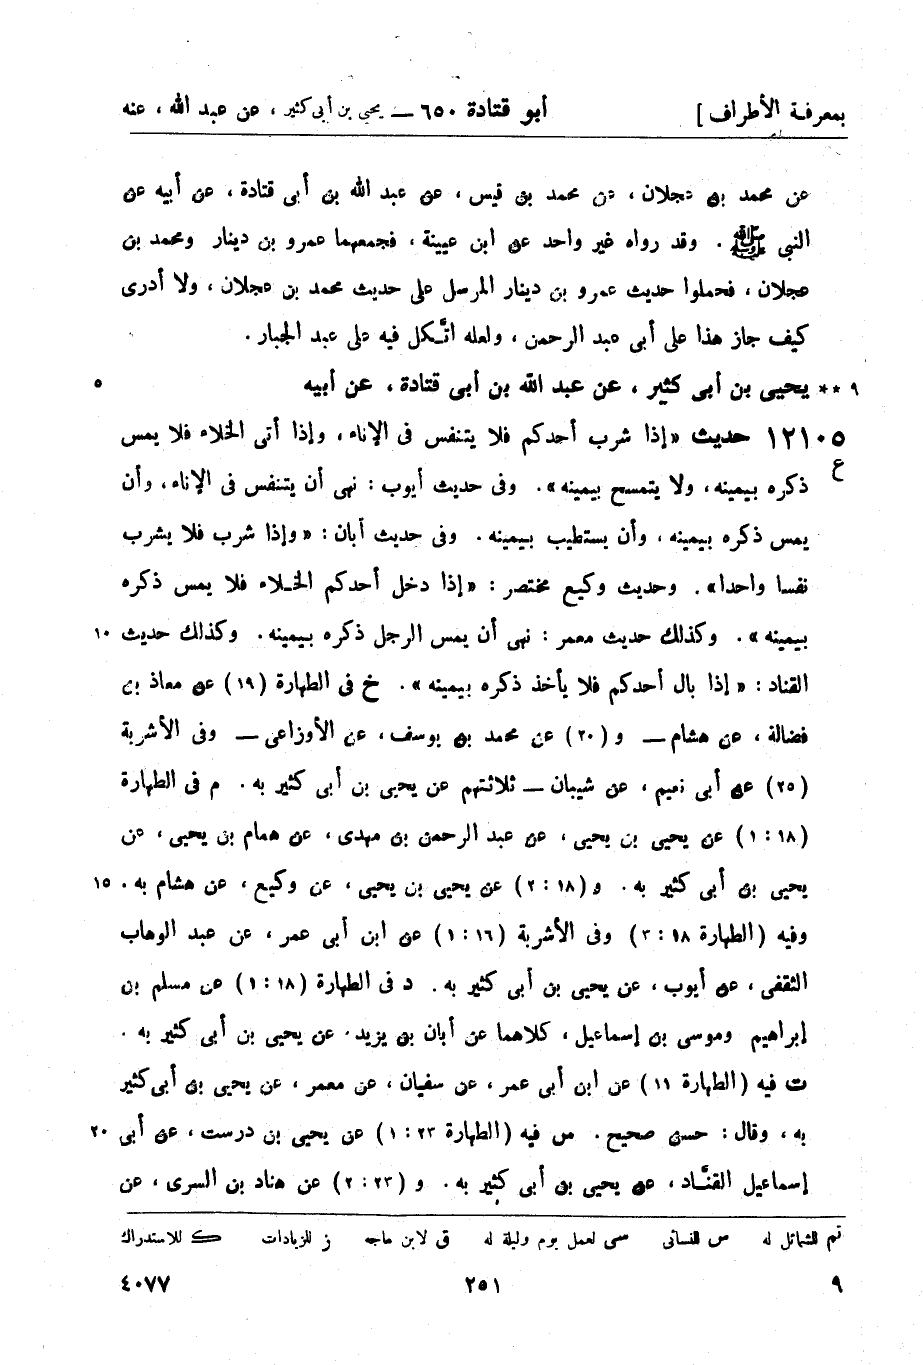 بمعرفة الأطراف ] أبو قتادة ٦٥٠ — يحيى بن أبى كثير ، عن عبد الله ، عنه
عن محمد بن عجلان ، عن محمد بن قيس ، عن عبد الله بن أبى قتادة ، عن أبيه عن
النبى ﷺ . وقد رواه غير واحد عن ابن عيينة ، فجمعهما عمرو بن دينار ومحمد بن
عجلان ، فحملوا حديث عمرو بن دينار المرسل على حديث محمد بن عجلان ، ولا أدرى
كيف جاز هذا على أبى عبد الرحمن ، ولعله اتَّكل فيه على عبد الجبار .
٩ ** يحيى بن أبى كثير ، عن عبد الله بن أبى قتادة ، عن أبيه ٥
١٢١٠٥ حديث « إذا شرب أحدكم فلا يتنفس فى الإناء ، وإذا أتى الخلاء فلا يمس
ع
ذكره بيمينه ، ولا يتمسح بيمينه » . وفى حديث أيوب : نهى أن يتنفس فى الإناء ، وأن
يمس ذكره بيمينه ، وأن يستطيب بيمينه . وفى حديث أبان : « وإذا شرب فلا يشرب
نفسا واحدا » . وحديث وكيع مختصر : « إذا دخل أحدكم الخلاء فلا يمس ذكره
بيمينه » . وكذلك حديث معمر : نهى أن يمس الرجل ذكره بيمينه . وكذلك حديث ١٠
القناد : « إذا بال أحدكم فلا يأخذ ذكره بيمينه » . خ فى الطهارة (١٩) عن معاذ بن
فضالة ، عن هشام — و (٢٠) عن محمد بن يوسف ، عن الأوزاعى — وفى الأشربة
(٢٥) عن أبى نعيم ، عن شيبان — ثلاثتهم عن يحيى بن أبى كثير به . م فى الطهارة
(١٨ : ١) عن يحيى بن يحيى ، عن عبد الرحمن بن مهدى ، عن همام بن يحيى ، عن
يحيى بن أبى كثير به . و (١٨ : ٢) عن يحيى بن يحيى ، عن وكيع ، عن هشام به . ١٥
وفيه (الطهارة ١٨ : ٣) وفى الأشربة (١٦ : ١) عن ابن أبى عمر ، عن عبد الوهاب
الثقفى ، عن أيوب ، عن يحيى بن أبى كثير به . د فى الطهارة (١٨ : ١) عن مسلم بن
إبراهيم وموسى بن إسماعيل ، كلاهما عن أبان بن يزيد ، عن يحيى بن أبى كثير به .
ت فيه (الطهارة ١١) عن ابن أبى عمر ، عن سفيان ، عن معمر ، عن يحيى بن أبى كثير
به ، وقال : حسن صحيح . س فيه (الطهارة ٢٣ : ١) عن يحيى بن درست ، عن أبى ٢٠
إسماعيل القنَّاد ، عن يحيى بن أبى كثير به . و (٢٣ : ٢) عن هناد بن السرى ، عن
تم للشمائل له س للنسائى سى لعمل يوم وليلة له ق لابن ماجه ز للزيادات ك للاستدراك
٩ ٢٥١ ٤٠٧٧